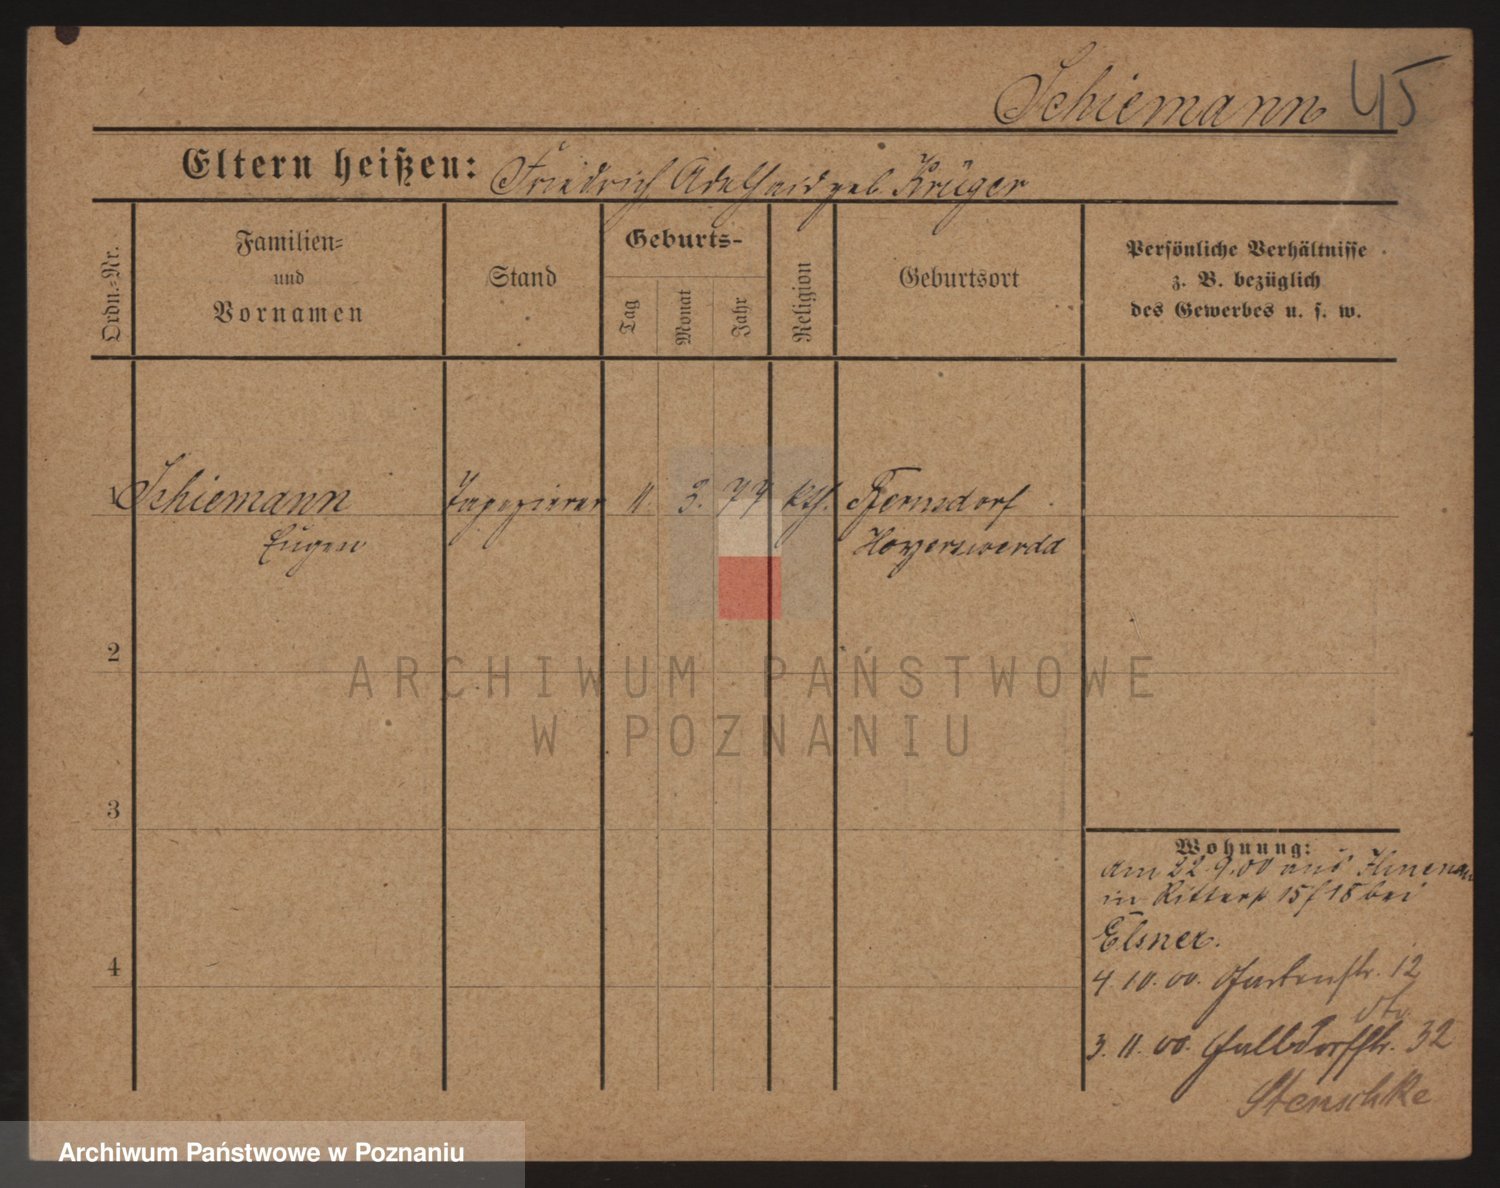 Schiemann 45
Eltern heißen: Friedrich, Adelheid geb Krüger
Ordn.-Nr.
Familien-
und
Vornamen
Stand
Geburts-
Tag
Monat
Jahr
Religion
Geburtsort
Persönliche Verhältnisse
z. B. bezüglich
des Gewerbes u. s. w.
1 Schiemann Tapezierer 11. 3. 77 kth. Bernsdorf
Eugen Hoyerswerda
2
3
4
Wohnung:
am 22 9.00 aus Ilmenau
in Ritterstr 15/18 bei
Elsner.
4 10. 00. Gartenstr. 12
3. 11. 00. Halbdorfstr. 32
Stenschke
ARCHIWUM PAŃSTWOWE
W POZNANIU
Archiwum Państwowe w Poznaniu